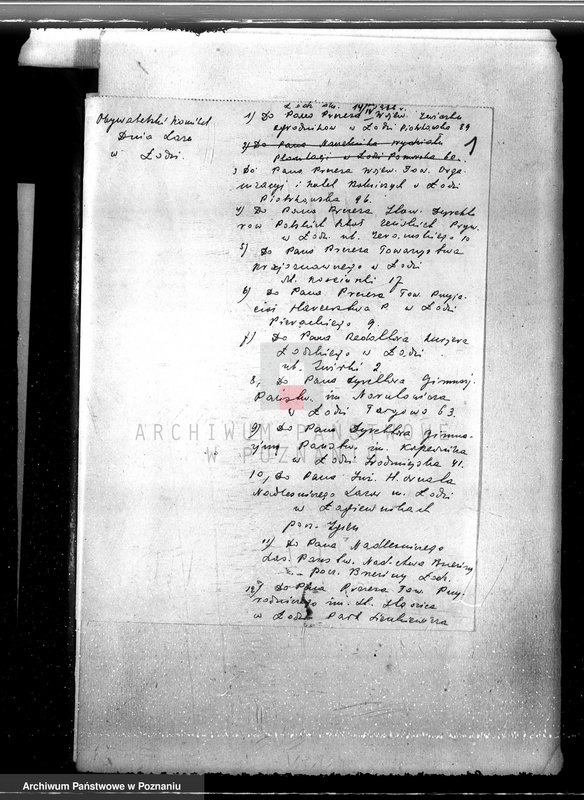 Obywatelski Komitet
Dnia Lasu
w Łodzi.
Łódź dn.
1) Do Pana Prezesa Wojew. Związku
ogrodników w Łodzi Piotrkowska 89
1
2) Do Pana Naczelnika Wydziału
Plantacji w Łodzi Pomorska
3) Do Pana Prezesa Wojew. Tow. Orga
nizacyj i Kółek Rolniczych w Łodzi
Piotrkowska 96.
4) Do Pana Prezesa Stow. Dyrekto
rów Polskich Szkół Średnich Pryw.
w Łodzi ul. Żeromskiego 10
5) Do Pana Prezesa Towarzystwa
Krajoznawczego w Łodzi
Al. Kościuszki 17
6) Do Pana Prezesa Tow. Przyja
ciół Harcerstwa P. w Łodzi
Pierackiego 9.
7) Do Pana Redaktora Kurjera
Łódzkiego w Łodzi
ul. Żwirki 2
8, Do Pana Dyrektora Gimnazj.
Państw. im Narutowicza
w Łodzi Targowa 63.
9) Do Pana Dyrektora gimna-
zjum Państw. im. Kopernika
w Łodzi Śródmiejska 41.
10, Do Pana Inż. H.
Nadleśniczego Lasów m. Łodzi
w Łagiewnikach
pocz.
11) Do Pana Nadleśniczego
Las. Państw. Nad-ctwa Brzeziny
pocz. Brzeziny Łódz.
12) Do Pana Prezesa Tow. Przy
rodniczego im. St. Staszica
w Łodzi Park Sienkiewicza
ARCHIWUM PAŃSTWOWE
W POZNANIU
Archiwum Państwowe w Poznaniu